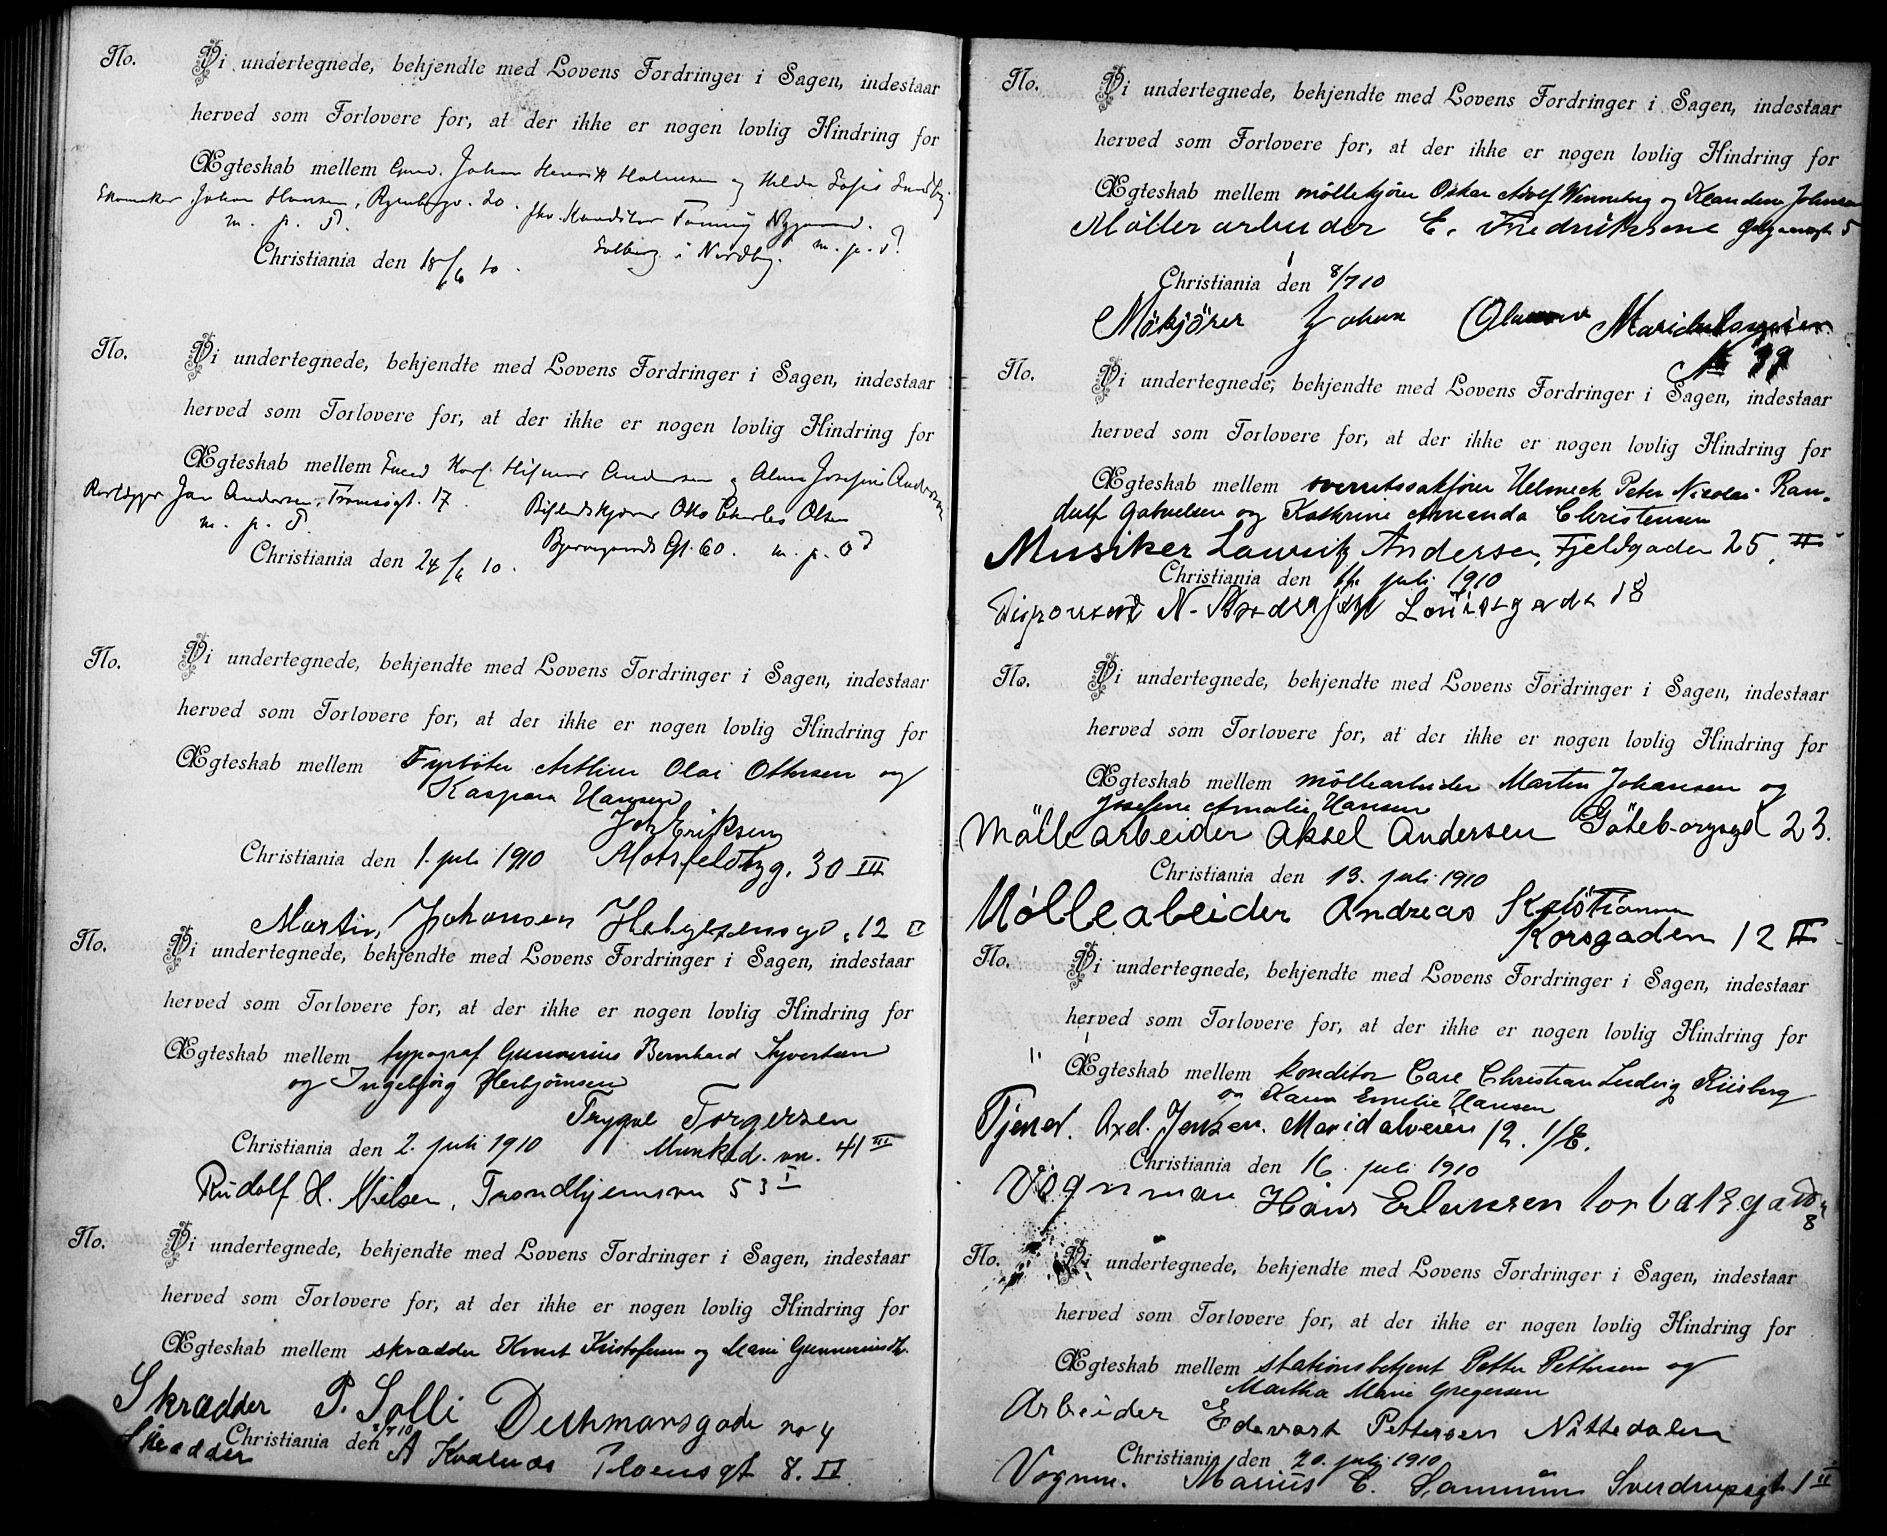 No. Vi undertegnede, bekjendte med Lovens Fordringer i Sagen, indestaar
herved som Forlovere for, at der ikke er nogen lovlig Hindring for
Ægteskab mellem Johan Henrik Halvorsen og Hilda Sofie
Johan Hansen, 20.
m. p. P.
Solberg i Nordby. m. p. P.
Christiania den 18/6 10.
No. Vi undertegnede, bekjendte med Lovens Fordringer i Sagen, indestaar
herved som Forlovere for, at der ikke er nogen lovlig Hindring for
Ægteskab mellem Karl Hilmar Andersen og Alma Josefine Andersen
Rørlægger Jan Andersen, Tromsøgt. 17. Otto Charles Olsen
m. p. P. Bjerregaards Gt. 60. m. p. P
Christiania den 24/6 10.
No. Vi undertegnede, bekjendte med Lovens Fordringer i Sagen, indestaar
herved som Forlovere for, at der ikke er nogen lovlig Hindring for
Ægteskab mellem Fyrbøter Arthur Olai Ottersen og
Kaspara Hansen
Joh Eriksen
Christiania den 1. juli 1910 Motzfeldtzg. 30 III
Martin Johansen Helgesensgd. 12 II
No. Vi undertegnede, bekjendte med Lovens Fordringer i Sagen, indestaar
herved som Forlovere for, at der ikke er nogen lovlig Hindring for
Ægteskab mellem typograf Gunnerius Bernhard Syvertsen
og Ingebjørg Herbjørnsen
Trygve Torgersen
Christiania den 2. juli 1910 Munked. vn. 41 III
Rudolf H. Nielsen, Trondhjemsvn 53 I
No. Vi undertegnede, bekjendte med Lovens Fordringer i Sagen, indestaar
herved som Forlovere for, at der ikke er nogen lovlig Hindring for
Ægteskab mellem skrædder Knut Kristofersen og Marie
Skrædder P. Solli Deichmansgade no 4
Christiania den 2/7 10
Skrædder A Kvalnes Pløensgt 8. II
No. Vi undertegnede, bekjendte med Lovens Fordringer i Sagen, indestaar
herved som Forlovere for, at der ikke er nogen lovlig Hindring for
Ægteskab mellem møllekjører Oskar Adolf Wenneberg og Klaudine Johnsen
Møller arbeider E. Fredriksen 5
Christiania den 8/7 10
Mökjörer Johan Maridalsveien
No 99
No. Vi undertegnede, bekjendte med Lovens Fordringer i Sagen, indestaar
herved som Forlovere for, at der ikke er nogen lovlig Hindring for
Ægteskab mellem overretssakfører Helmeck Peter Nicolai Ran-
dulf Gabrielsen og Kathrine Amanda Christensen
Musiker Lauritz Andersen, Fjeldgaden 25, II
Christiania den 11. juli 1910
Disponent N. Pedersen 18
No. Vi undertegnede, bekjendte med Lovens Fordringer i Sagen, indestaar
herved som Forlovere for, at der ikke er nogen lovlig Hindring for
Ægteskab mellem møllearbeider Martin Johansen og
Josefine Amalie Hansen
Mölle arbeider Aksel Andersen Göteborggd 23.
Christiania den 13. juli 1910
Mølleabeider Andreas Kristiansen
Korsgaden 12 II
No. Vi undertegnede, bekjendte med Lovens Fordringer i Sagen, indestaar
herved som Forlovere for, at der ikke er nogen lovlig Hindring for
Ægteskab mellem konditor Carl Christian Ludvig Riisberg
og Hansen
Tjener. Axel. Jensen. Maridalveien 12. 1/E.
Christiania den 16. juli 1910
Vognman Hans Erlansen 8
No. Vi undertegnede, bekjendte med Lovens Fordringer i Sagen, indestaar
herved som Forlovere for, at der ikke er nogen lovlig Hindring for
Ægteskab mellem stationsbetjent Petter Pettersen og
Martha Marie Gregersen
Arbeider Edevart Pettersen Nittedalen
Christiania den 20. juli 1910
Vognm. Marius E. Sverdrupsgt 1 II